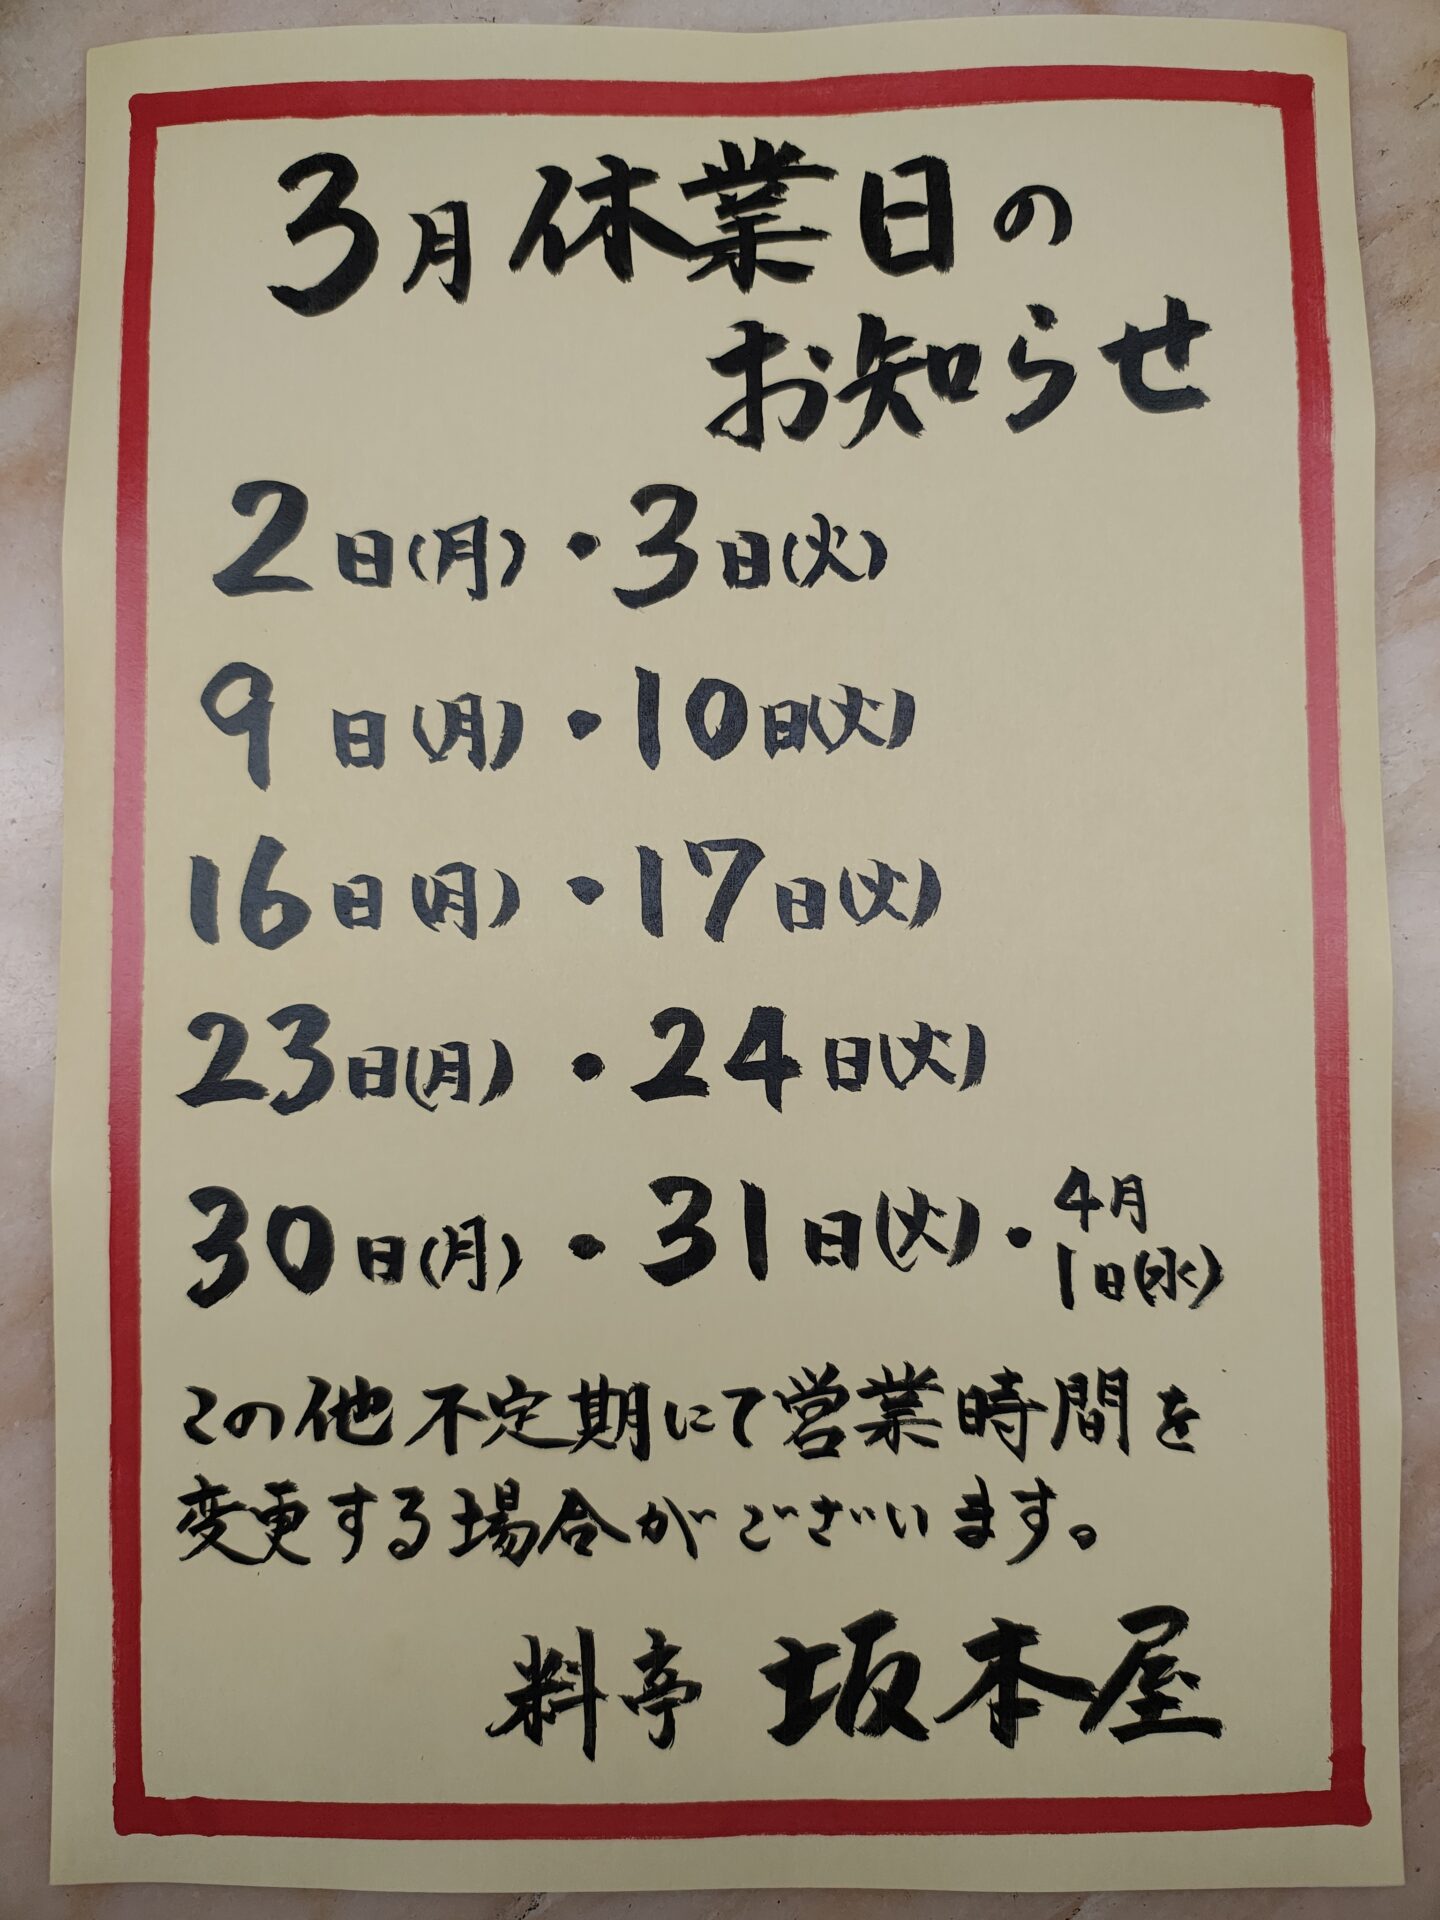 3月休業日の
お知らせ
2日(月)・3日(火)
9日(月)・10日(火)
16日(月)・17日(火)
23日(月)・24日(火)
30日(月)・31日(火)・4月1日(水)
この他不定期にて営業時間を
変更する場合がございます。
料亭 坂本屋